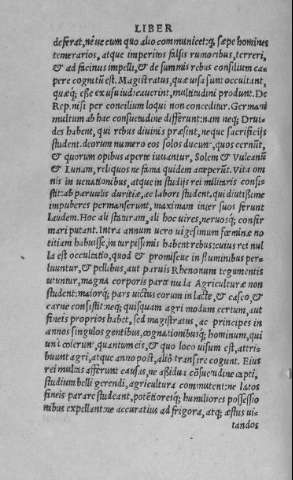 LIBER
deferat, néue cum quo alio communicet: q; sæpe homines
temerarios, atque imperitos falsis rumoribus, terreri,
& ad facinus impelli, & de summis rebus consilium ca-
pere cognitũ est. Magistratus, quæ uisa sunt occultant,
quæq; esse ex usu iudicauerint, multitudini produnt. De
Rep. nisi per concilium loqui non conceditur. Germani
multum ab hac consuetudine differunt: nam neq; Drui-
des habent, qui rebus diuinis præsint, neque sacrificijs
student. deorum numero eos solos ducunt, quos cernũt,
& quorum opibus aperte iuuantur, Solem & Vulcanũ
& Lunam, reliquos ne fama quidem acceperũt. Vita om
nis in uenationibus, atque in studijs rei militaris consis-
tit: ab paruulis duritiæ, ac labori student, qui diutissime
impuberes permanserunt, maximam inter suos ferunt
laudem. Hoc ali staturam, ali hoc uires, neruosq; confir
mari putant. Intra annum uero uigesimum fœminæ no
titiam habuisse, in turpissimis habent rebus: cuius rei nul
la est occultatio, quod & promiscue in fluminibus per-
luuntur, & pellibus, aut paruis Rhenonum tegumentis
utuntur, magna corporis parte nuda. Agriculturæ non
student: maiorq; pars uictus eorum in lacte, & caseo, &
carne consistit: neq; quisquam agri modum certum, aut
fineis proprios habet, sed magistratus, ac principes in
annos singulos gentibus, cognationibusq; hominum, qui
unà coierunt, quantum eis, & quo loco uisum est, attri-
buunt agri, atque anno post, aliò transire cogunt. Eius
rei multas afferunt causas, ne assidua cõsuetudine capti,
studium belli gerendi, agricultura commutent: ne latos
fineis parare studeant, potẽtioresq; humiliores possessio
nibus expellant: ne accuratius ad frigora, atq; æstus ui-
tandos